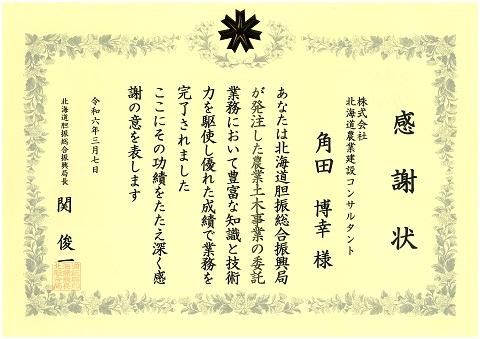 感謝状
株式会社
北海道農業建設コンサルタント
角田 博幸 様
あなたは北海道胆振総合振興局
が発注した農業土木事業の委託
業務において豊富な知識と技術
力を駆使し優れた成績で業務を
完了されました
ここにその功績をたたえ深く感
謝の意を表します
令和六年三月七日
北海道胆振総合振興局長 関 俊一